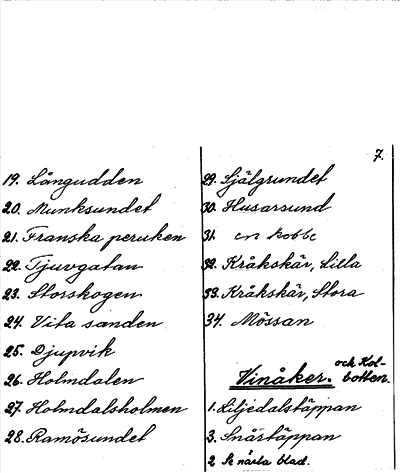 7.
19. Långudden
20. Munksundet
21. Franska peruken
22. Tjuvgatan
23. Storskogen
24. Vita sanden
25. Djupvik
26. Holmdalen
27. Holmdalsholmen
28. Ramösundet
29. Själgrundet
30. Husarsund
31. en kobbe
32. Kråkskär, Lilla
33. Kråkskär, Stora
34. Mössan
Vinåker. och Kol-
botten.
1. Liljedalstäppan
3. Snårtäppan
2 Se nästa blad.